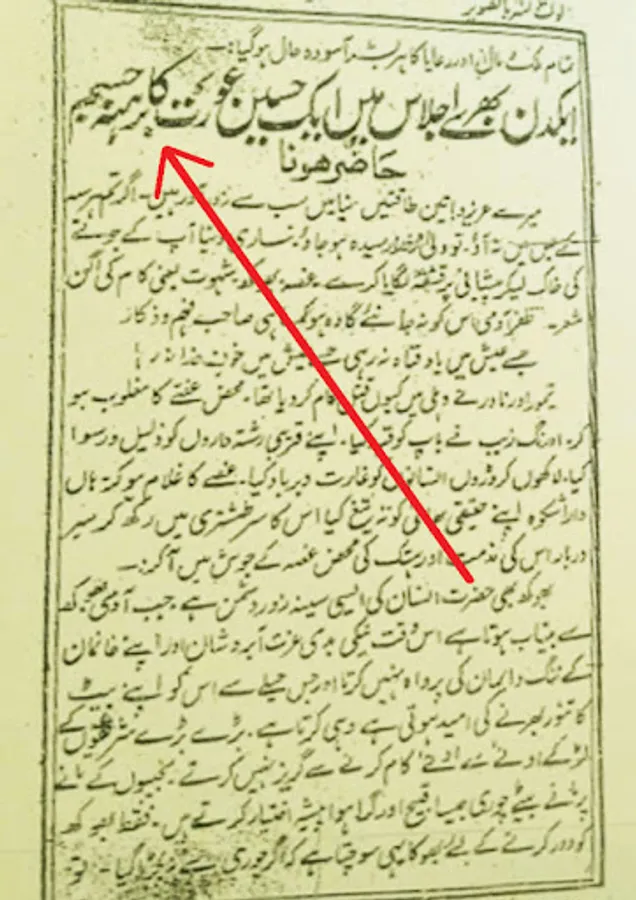 تمام ملک مالا اور رعایا کا ہر بشر آسودہ حال ہوگیا:۔
ایکدن بھرے اجلاس میں ایک حسین عورت کا برہنہ جسیم
حاضر ہونا
میرے عزیز و! تین طاقتیں دنیا میں سب سے زور آور ہیں۔ اگر تم ہر سہ
کے بس میں نہ آؤ۔ تو ولی رسیدہ ہو جاؤ۔ ساری دنیا آپ کے جوتے
کی خاک لیکر پیشانی پر قشقہ لگایا کرے۔ غصہ بھوکھ شہوت یعنی کام کی اگن
شعر۔ ظفر آدمی اس کو نہ جانئے گا وہ ہو کیسا ہی صاحب فہم و ذکا
جسے عیش میں یاد خدا نہ رہی جسے طیش میں خوف خدا نہ رہا
تیمور اور نادر نے دہلی میں کیوں قتل عام کر دیا تھا۔ محض غصے کا مغلوب ہو
کر۔ اورنگ زیب نے باپ کو قید کیا۔ اپنے قریبی رشتہ داروں کو ذلیل و رسوا
کیا۔ لاکھوں کروڑوں انسانوں کو غارت و برباد کیا۔ غصے کا غلام ہو کر ہاں
دارا شکوہ اپنے حقیقی بھائی کو تہ تیغ کیا اس کا سر طشتری میں رکھ کر سر
دربار اس کی مذمت اور ہتک کی محض غصہ کے جوش میں آ کر:۔
بھوکھ بھی حضرت انسان کی ایسی سینہ زور دشمن ہے۔ جب آدمی بھوکھ
سے بیتاب ہوتا ہے اس وقت نیکی بدی عزت آبرو شان اور اپنے خاندان
کے ننگ و ایمان کی پرواہ نہیں کرتا اور جس حیلے سے اس کو اپنے پیٹ
کا تنور بھرنے کی امید ہوتی ہے وہی کرتا ہے۔ بڑے بڑے شریفوں کے
لڑکے ادنےٰ سے ادنےٰ کام کرنے سے گریز نہیں کرتے۔
بیٹے چوری جیسا قبیح اور گرا ہوا پیشہ اختیار کرتے ہیں۔ فقط بھوکھ
کو دور کرنے کے لیے بھوکا یہی سوچتا ہے کہ اگر چوری سے پکڑا گیا۔ تو